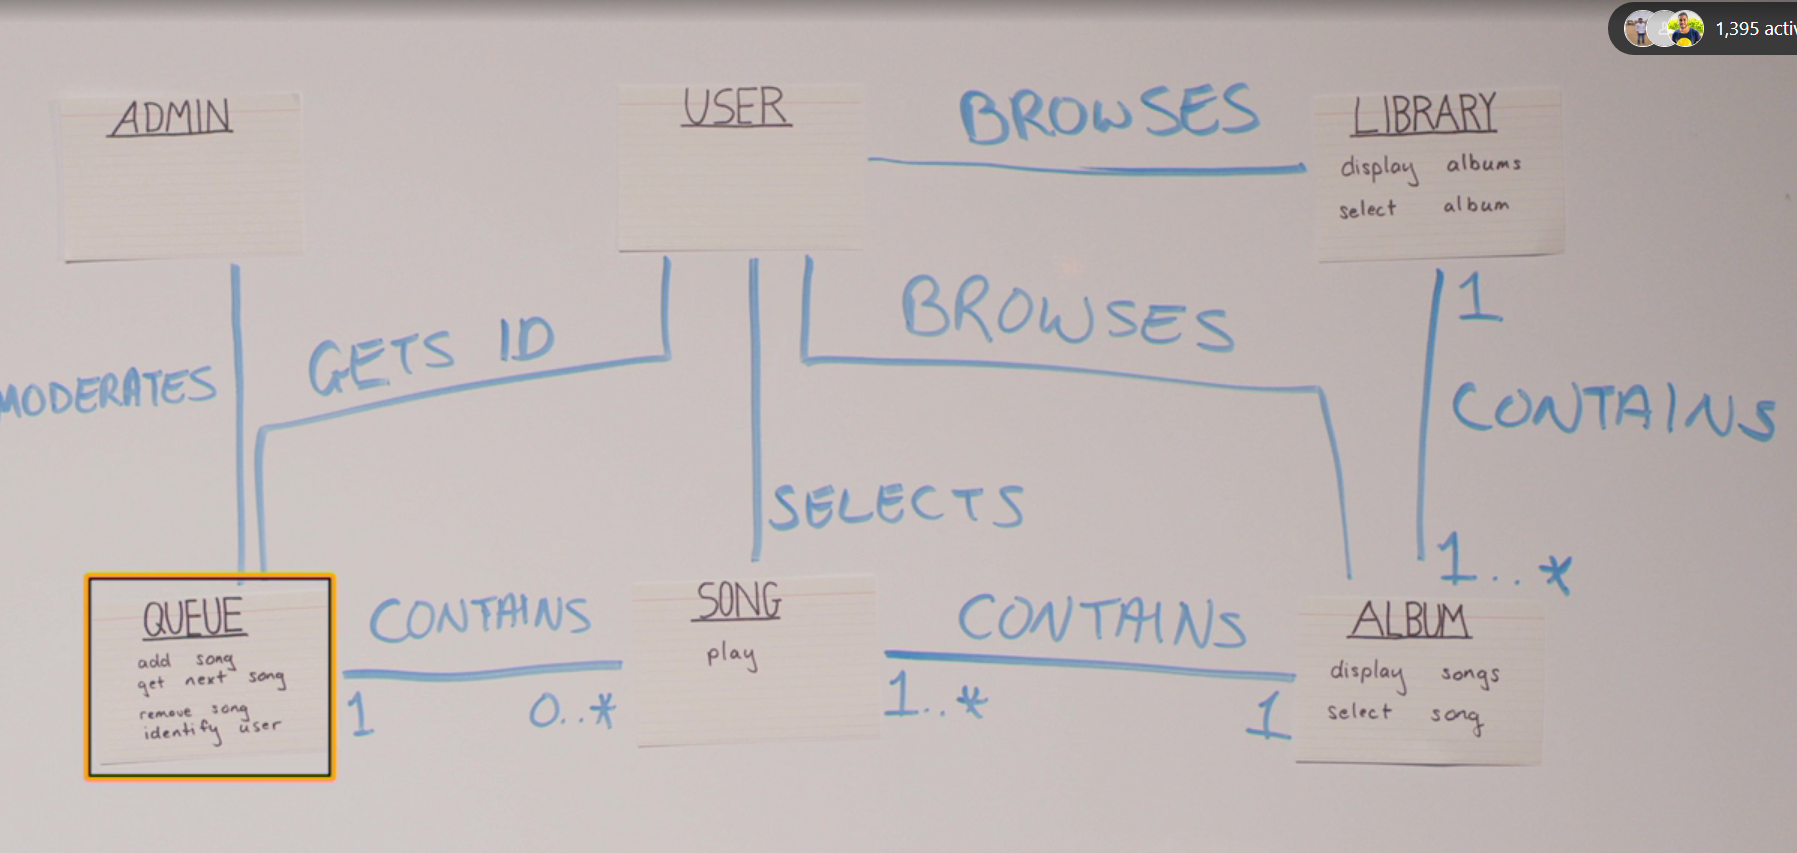 1,395
ADMIN
USER
BROWSES
LIBRARY
display albums
select album
MODERATES
GETS ID
BROWSES
1
CONTAINS
SELECTS
1..*
QUEUE
add song
get next song
remove song
identify user
CONTAINS
1
0..*
SONG
play
CONTAINS
1..*
1
ALBUM
display songs
select song